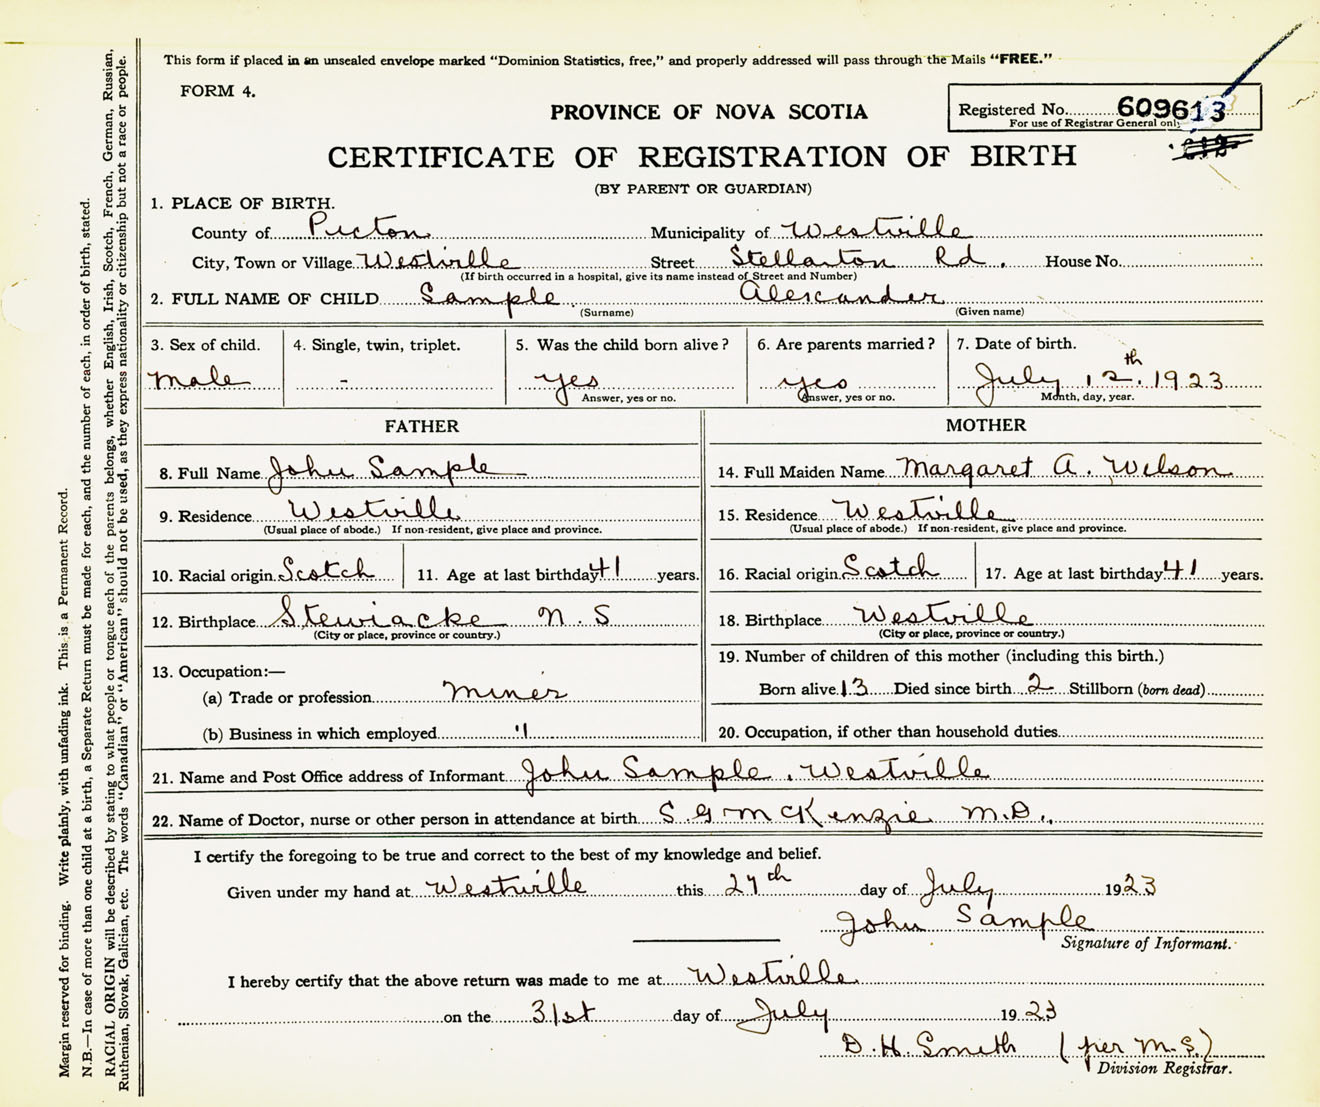 This form if placed in an unsealed envelope marked “Dominion Statistics, free,” and properly addressed will pass through the Mails “FREE.”
FORM 4.
PROVINCE OF NOVA SCOTIA
Registered No. 609613
For use of Registrar General only
CERTIFICATE OF REGISTRATION OF BIRTH
(BY PARENT OR GUARDIAN)
1. PLACE OF BIRTH.
County of Pictou Municipality of Westville
City, Town or Village Westville Street Stellarton Rd. House No.
(If birth occurred in a hospital, give its name instead of Street and Number)
2. FULL NAME OF CHILD Sample Alexander
(Surname) (Given name)
3. Sex of child. 4. Single, twin, triplet. 5. Was the child born alive? 6. Are parents married? 7. Date of birth.
male - yes yes July 12th. 1923
Answer, yes or no. Answer, yes or no. Month, day, year.
FATHER MOTHER
8. Full Name John Sample 14. Full Maiden Name Margaret A. Wilson
9. Residence Westville 15. Residence Westville
(Usual place of abode.) If non-resident, give place and province. (Usual place of abode.) If non-resident, give place and province.
10. Racial origin Scotch 11. Age at last birthday 41 years. 16. Racial origin Scotch 17. Age at last birthday 41 years.
12. Birthplace Stewiacke N. S 18. Birthplace Westville
(City or place, province or country.) (City or place, province or country.)
13. Occupation:— 19. Number of children of this mother (including this birth.)
(a) Trade or profession miner Born alive 13 Died since birth 2 Stillborn (born dead)
(b) Business in which employed " 20. Occupation, if other than household duties
21. Name and Post Office address of Informant John Sample. Westville
22. Name of Doctor, nurse or other person in attendance at birth S G McKenzie M.D.
I certify the foregoing to be true and correct to the best of my knowledge and belief.
Given under my hand at Westville this 27th day of July 1923
John Sample
Signature of Informant.
I hereby certify that the above return was made to me at Westville
on the 31st day of July 1923
D. H. Smith (per M. S.)
Division Registrar.
Margin reserved for binding. Write plainly, with unfading ink. This is a Permanent Record.
N.B.—In case of more than one child at a birth, a Separate Return must be made for each, and the number of each, in order of birth, stated.
RACIAL ORIGIN will be described by stating to what people or tongue each of the parents belongs, whether English, Irish, Scotch, French, German, Russian,
Ruthenian, Slovak, Galician, etc. The words “Canadian” or “American” should not be used, as they express nationality or citizenship but not a race or people.